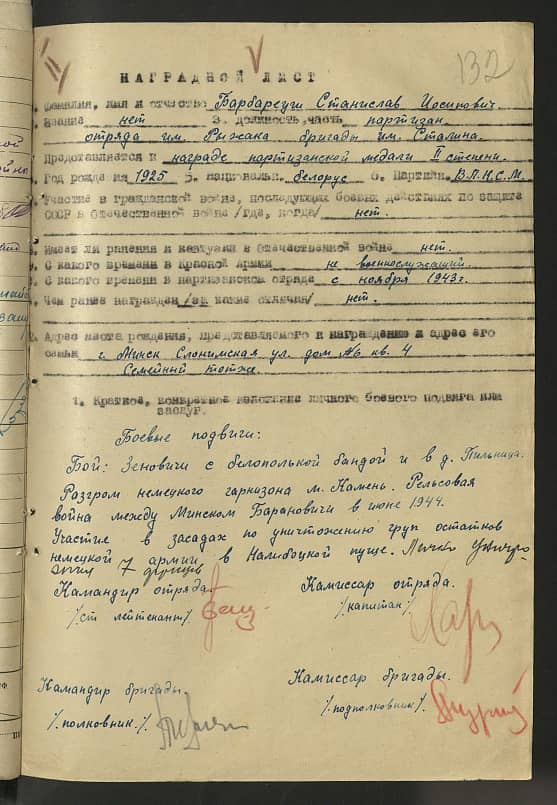 132
НАГРАДНОЙ ЛИСТ
Фамилия, имя и отчество Барбарецуги Станислав Иосипович
Звание нет 3. должность, часть партизан.
отряда им. Рыжака бригады им. Сталина.
Представляется к награде партизанской медали II степени.
Год рождения 1925 5. национальн. белорус 6. Партийн. В.Л.К.С.М.
Участие в гражданской войне, последующих боевых действиях по защите
СССР в Отечественной войне /где, когда/ нет.
Имеет ли ранения и контузии в Отечественной войне нет.
С какого времени в Красной Армии не военнослужащий.
С какого времени в партизанском отряде с ноября 1943г.
Чем ранее награжден /за какие отличия/ нет.
Адрес места рождения, представляемого к награждению и адрес его
семьи г. Минск Слонимская ул. дом №6 кв. 4
Семейный тотже.
1. Краткое, конкретное изложение личного боевого подвига или
заслуг.
Боевые подвиги:
Бой: Зеновичи с белопольской бандой и в д. Пильница.
Разгром немецкого гарнизона м. Камень. Рельсовая
война между Минском Барановичи в июне 1944.
Участие в засадах по уничтожению груп остатков
немецкой армии в Налибоцкой пуще. Лично
7 фрицев
Камандир отряда. Камиссар отряда.
/.ст лейтенант/. /.капитан/.
Камандир бригады. Камиссар бригады.
/.полковник./. /.подполковник/.